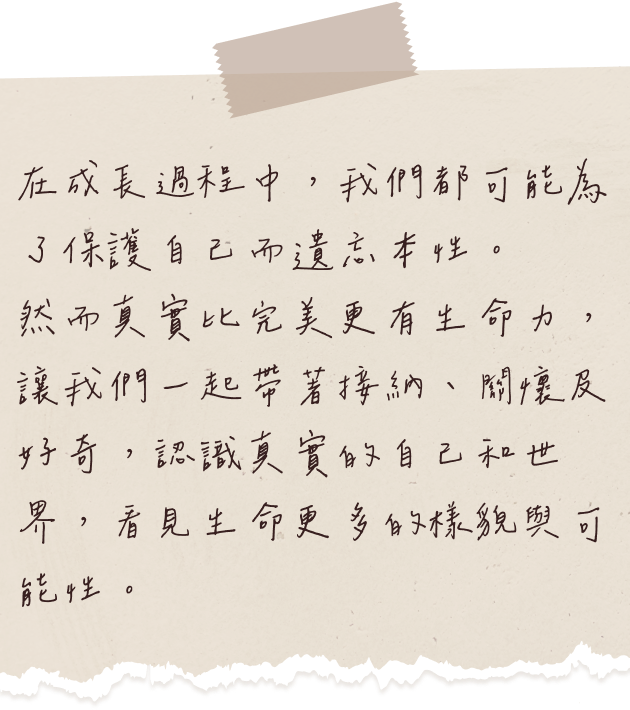 在成長過程中，我們都可能為
了保護自己而遺忘本性。
然而真實比完美更有生命力，
讓我們一起帶著接納、關懷及
好奇，認識真實的自己和世
界，看見生命更多的樣貌與可
能性。